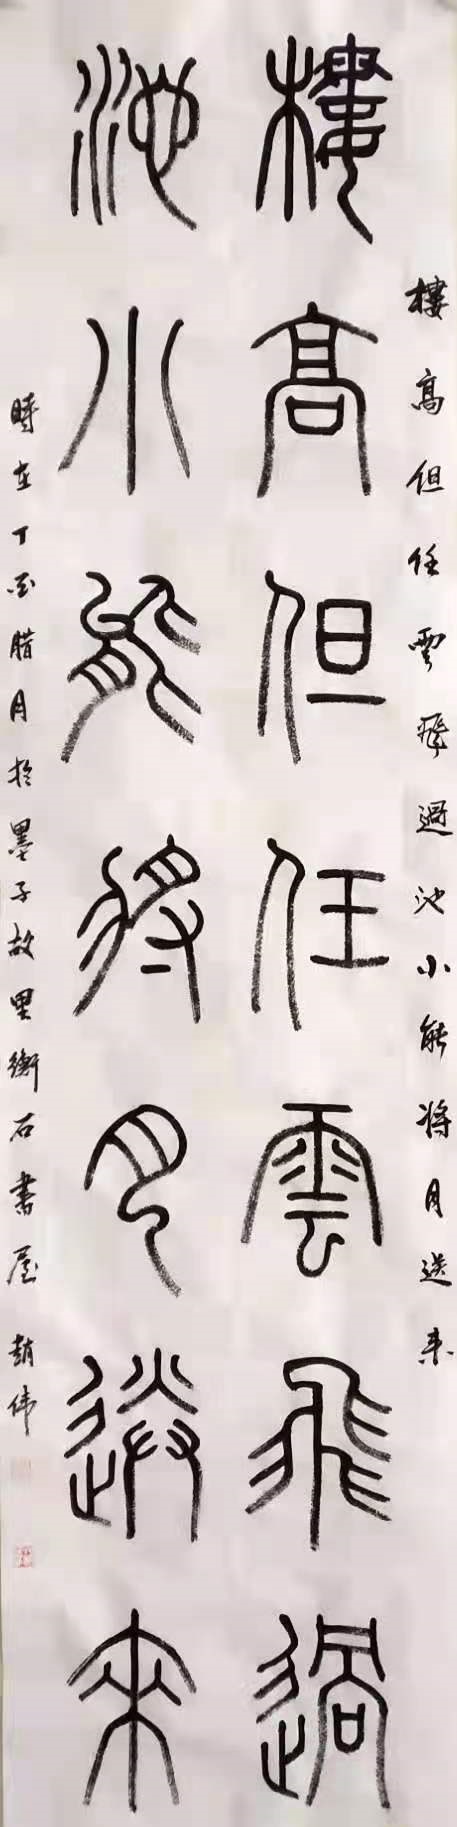 樓高但任雲飛過池小能將月送来
樓高但任雲飛過
池小能將月送來
時在丁酉腊月於墨子故里衡石書屋 趙偉